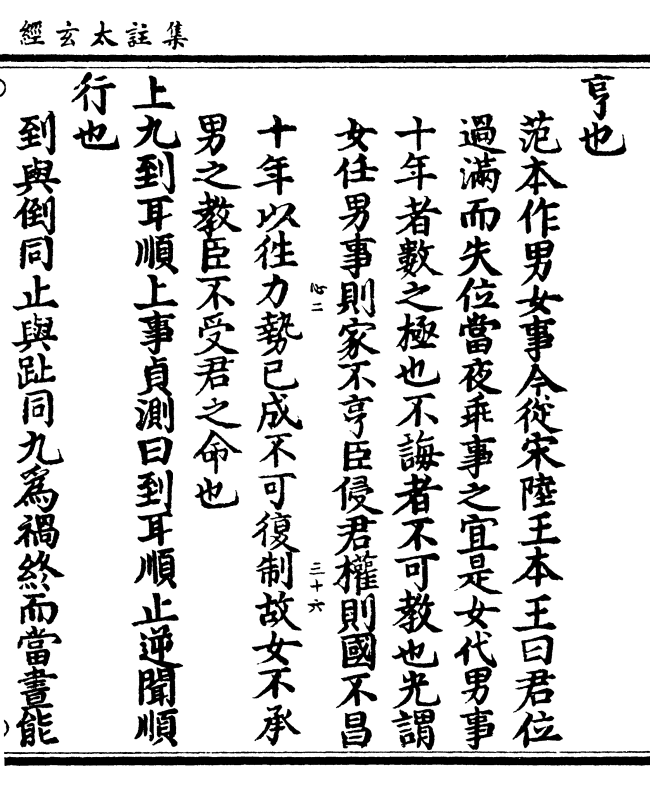 集註太玄經
亨也
范本作男女事今從宋陸王本王曰君位
過滿而失位當夜乖事之宜是女代男事
十年者數之極也不誨者不可教也光謂
女任男事則家不亨臣侵君權則國不昌
心二
三十六
十年以徃力勢已成不可復制故女不承
男之教臣不受君之命也
上九到耳順上事貞測曰到耳順止逆聞順
行也
到與倒同止與趾同九爲禍終而當晝能